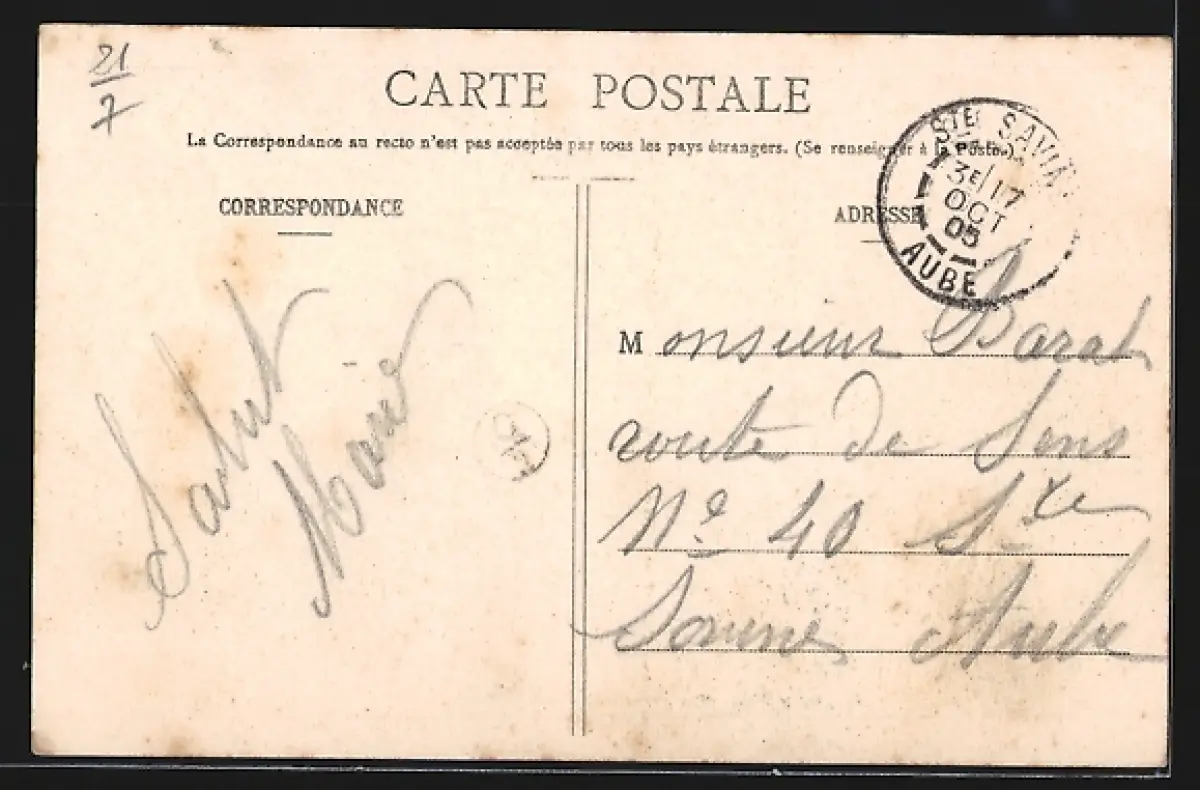 21
7
CARTE POSTALE
La Correspondance au recto n'est pas acceptée par tous les pays étrangers. (Se renseigner à la Poste.)
CORRESPONDANCE
ADRESSE
STE SAVINE
3E/17
OCT
05
AUBE
Salut
Marie
Monsieur Barat
route de Sens
No 40 Ste
Savine Aube